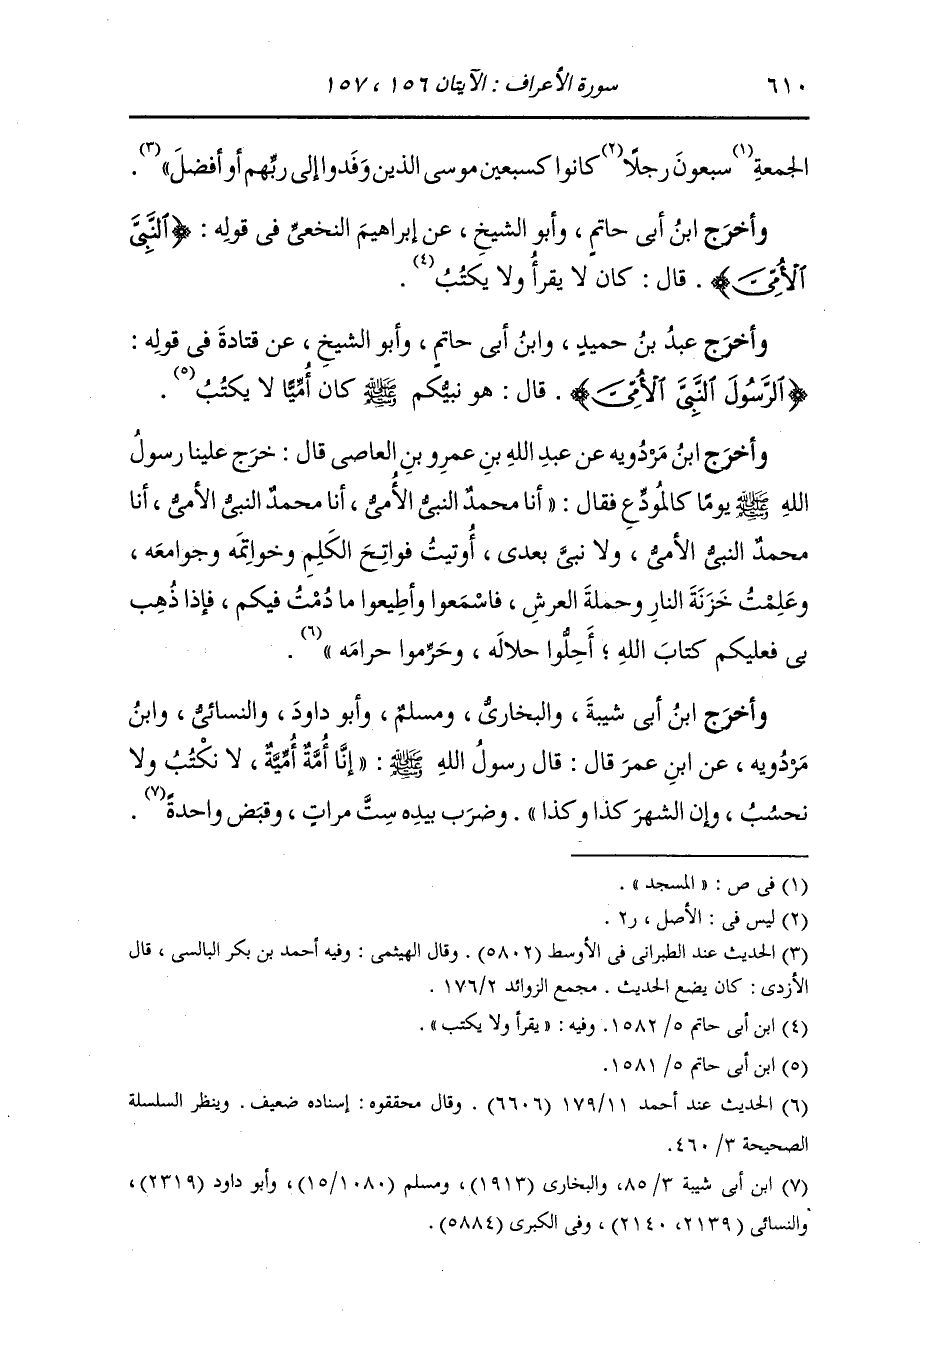 ٦١٠ سورة الأعراف : الآيتان ١٥٦ ، ١٥٧
الجمعةِ(١) سبعونَ رجلًا(٢) كانوا كسبعين موسى الذين وَفَدوا إلى ربِّهم أو أفضلَ»(٣) .
وأخرَج ابنُ أبى حاتمٍ ، وأبو الشيخِ ، عن إبراهيمَ النخعىِّ فى قولِه : ﴿ٱلنَّبِىَّ
ٱلْأُمِّىَّ﴾ . قال : كان لا يقرأُ ولا يكتُبُ(٤) .
وأخرَج عبدُ بنُ حميدٍ ، وابنُ أبى حاتمٍ ، وأبو الشيخِ ، عن قتادةَ فى قولِه :
﴿ٱلرَّسُولَ ٱلنَّبِىَّ ٱلْأُمِّىَّ﴾ . قال : هو نبيُّكم ﷺ كان أُمِّيًّا لا يكتُبُ(٥) .
وأخرَج ابنُ مَرْدُويه عن عبدِ اللهِ بنِ عمرِو بنِ العاصى قال : خرَج علينا رسولُ
اللهِ ﷺ يومًا كالمُودِّعِ فقال : « أنا محمدٌ النبىُّ الأُمىُّ ، أنا محمدٌ النبىُّ الأمىُّ ، أنا
محمدٌ النبىُّ الأمىُّ ، ولا نبىَّ بعدى ، أُوتيتُ فواتِحَ الكَلِمِ وخواتِمَه وجوامعَه ،
وعَلِمْتُ خَزَنَةَ النارِ وحملةَ العرشِ ، فاسْمَعوا وأطِيعوا ما دُمْتُ فيكم ، فإذا ذُهِب
بى فعليكم كتابَ اللهِ ؛ أَحِلُّوا حلالَه ، وحَرِّموا حرامَه »(٦) .
وأخرَج ابنُ أبى شيبةَ ، والبخارىُّ ، ومسلمٌ ، وأبو داودَ ، والنسائىُّ ، وابنُ
مَرْدُويه ، عن ابنِ عمرَ قال : قال رسولُ اللهِ ﷺ : « إنَّا أُمَّةٌ أُمِّيَّةٌ ، لا نكْتُبُ ولا
نحسُبُ ، وإن الشهرَ كذا وكذا » . وضرَب بيدِه سِتَّ مراتٍ ، وقبَض واحدةً(٧) .
(١) فى ص : « المسجد » .
(٢) ليس فى : الأصل ، ر٢ .
(٣) الحديث عند الطبرانى فى الأوسط (٥٨٠٢) . وقال الهيثمى : وفيه أحمد بن بكر البالسى ، قال
الأزدى : كان يضع الحديث . مجمع الزوائد ١٧٦/٢ .
(٤) ابن أبى حاتم ٥/ ١٥٨٢. وفيه : « يقرأ ولا يكتب » .
(٥) ابن أبى حاتم ٥/ ١٥٨١.
(٦) الحديث عند أحمد ١٧٩/١١ (٦٦٠٦) . وقال محققوه : إسناده ضعيف . وينظر السلسلة
الصحيحة ٣/ ٤٦٠.
(٧) ابن أبى شيبة ٣/ ٨٥، والبخارى (١٩١٣) ، ومسلم (١٥/١٠٨٠) ، وأبو داود (٢٣١٩) ،
والنسائى ( ٢١٣٩، ٢١٤٠) ، وفى الكبرى (٥٨٨٤) .